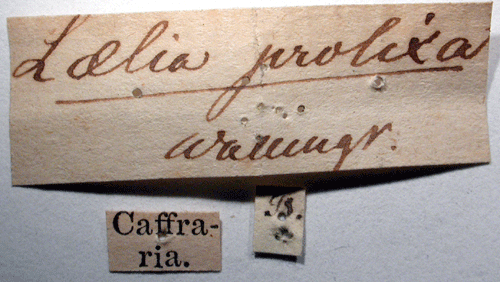 Lælia prolixa
Wallengr.
Caffra-
ria.